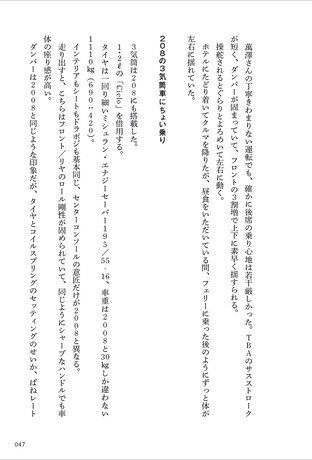 萬澤さんの丁寧きわまりない運転でも、確かに後席の乗り心地は若干厳しかった。TBAのサスストローク
が短く、ダンパーが固まっていて、フロントの3割増で上下に素早く揺すられる。
操舵されるとぐらりとよろめいて左右に動く。
ホテルにたどり着いてクルマを降りたが、昼食をいただいている間、フェリーに乗った後のようにずっと体が
左右に揺れていた。
208の3気筒車にちょい乗り
3気筒は208にも搭載した。
1.2ℓの「Cielo」を借用する。
タイヤは一回り細いミシュラン・エナジーセーバー195/55-16、車重は2008と30㎏しか違わない
1110㎏（690：420）。
インテリアもシートもドラポジも基本同じ、センターコンソールの意匠だけが2008と異なる。
走り出すと、こちらはフロント/リヤのロール剛性が固められていて、同じようにシャープなハンドルでも車
体の座り感が高い。
ダンパーは2008と同じような印象だが、タイヤとコイルスプリングのセッティングのせいか、ばねレート
047